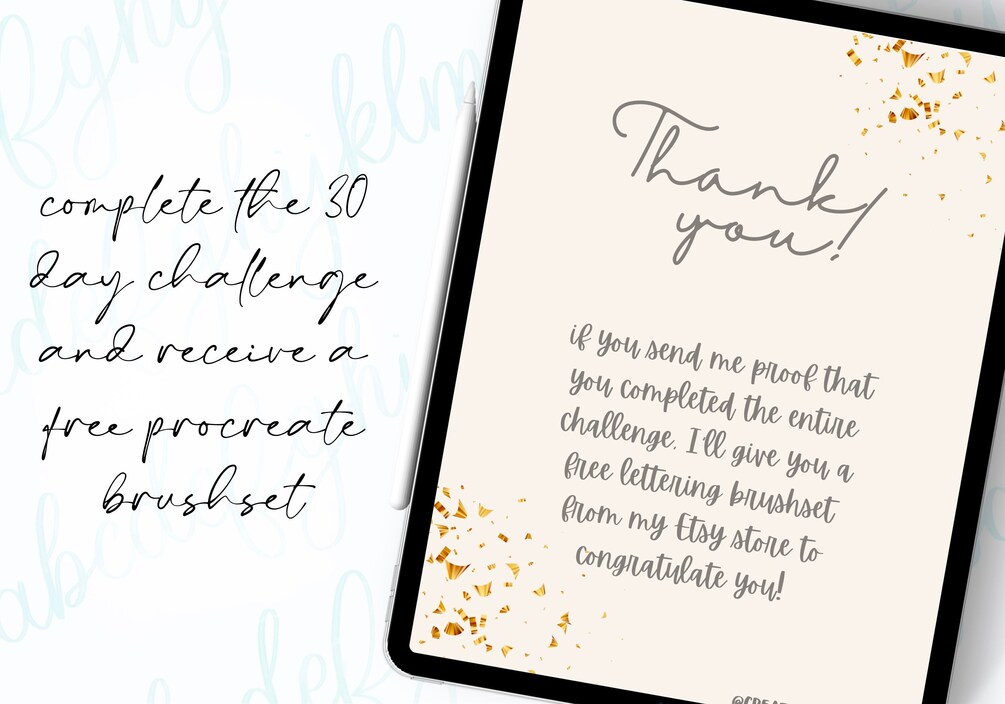 complete the 30
day challenge
and receive a
free procreate
brushset
Thank
you!
if you send me proof that
you completed the entire
challenge. I'll give you a
free lettering brushset
from my Etsy store to
congratulate you!